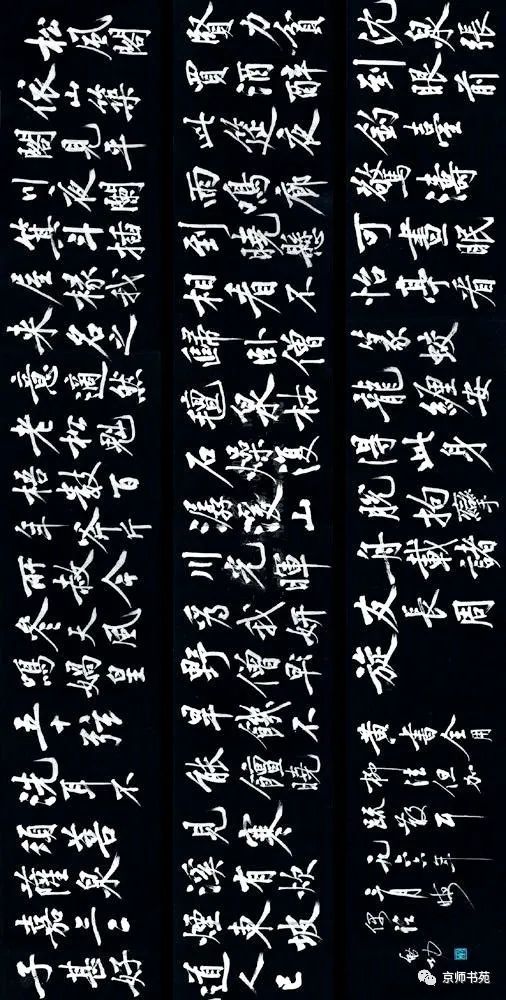 松風閣
依山築
閣見平
川夜闌
箕斗插
屋椽我
來名之
意適然
老松魁
梧數百
年斧斤
所赦今
參天風
鳴媧皇
五十弦
洗耳不
須菩
薩泉
嘉二三
子甚好
賢力貧
買酒醉
此筵夜
雨鳴廊
到曉懸
相看不
歸臥僧
氈泉枯
石燥復
潺湲山
川光暉
為我妍
野僧早
旱饑不
能饘曉
見寒
溪有炊
煙東坡
道人已
沈泉張
到眼前
釣臺
驚濤
可晝眠
怡亭看
篆蛟
龍纏安
得此身
脫拘攣
舟載諸
友長周
旋
黃書全用
柳法但加
跌宕耳
啟功
京师书苑